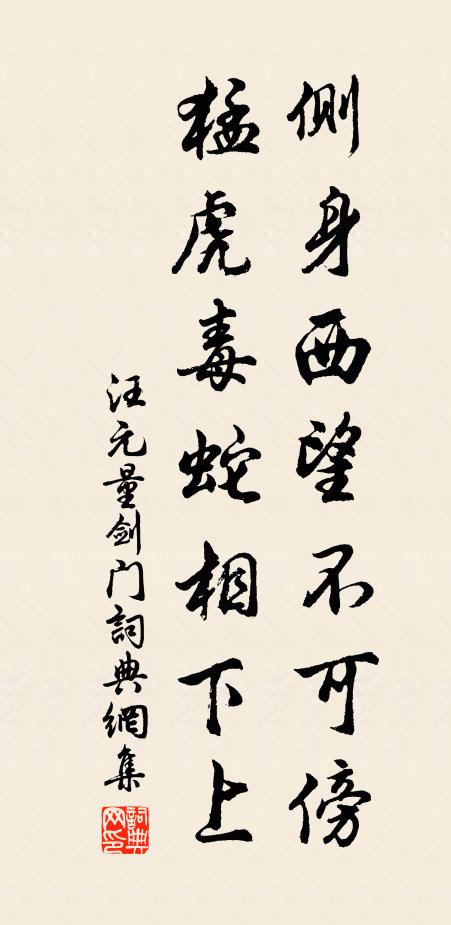 侧身西望不可傍
猛虎毒蛇相下上
汪元量剑门詞典網集
詞典
网印